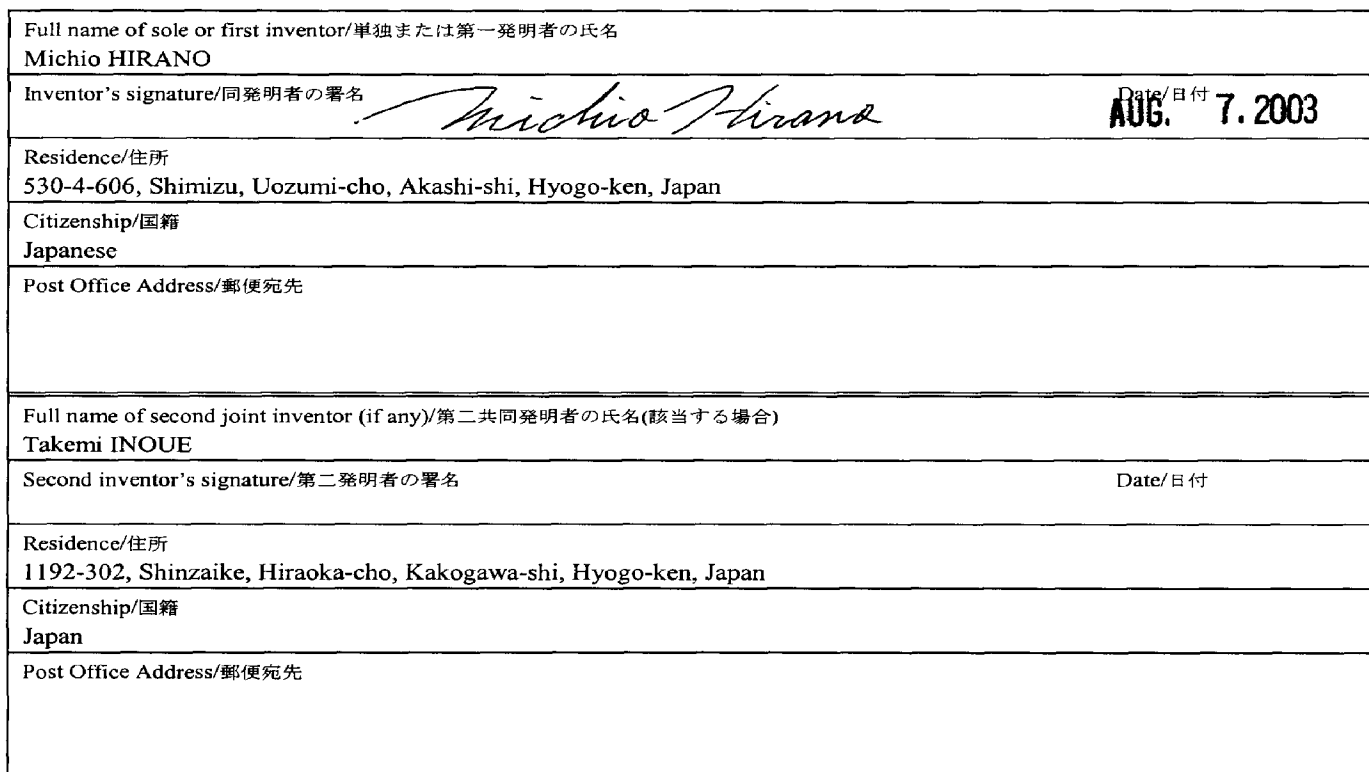 Full name of sole or first inventor/単独または第一発明者の氏名
Michio HIRANO
Inventor's signature/同発明者の署名 Michio Hirano Date/日付 AUG. 7. 2003
Residence/住所
530-4-606, Shimizu, Uozumi-cho, Akashi-shi, Hyogo-ken, Japan
Citizenship/国籍
Japanese
Post Office Address/郵便宛先
Full name of second joint inventor (if any)/第二共同発明者の氏名(該当する場合)
Takemi INOUE
Second inventor's signature/第二発明者の署名 Date/日付
Residence/住所
1192-302, Shinzaike, Hiraoka-cho, Kakogawa-shi, Hyogo-ken, Japan
Citizenship/国籍
Japan
Post Office Address/郵便宛先